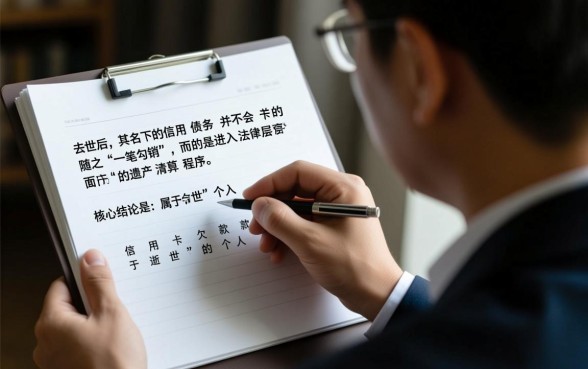 去世后，其名下的信用 债务 并不会 的
随之“一笔勾销”，而的是进入法律层
面 “的遗产 清算 程序。
核心结论是：属于 世”个人
信 用 卡 欠 款 款
于 逝 世 ” 的 个 人